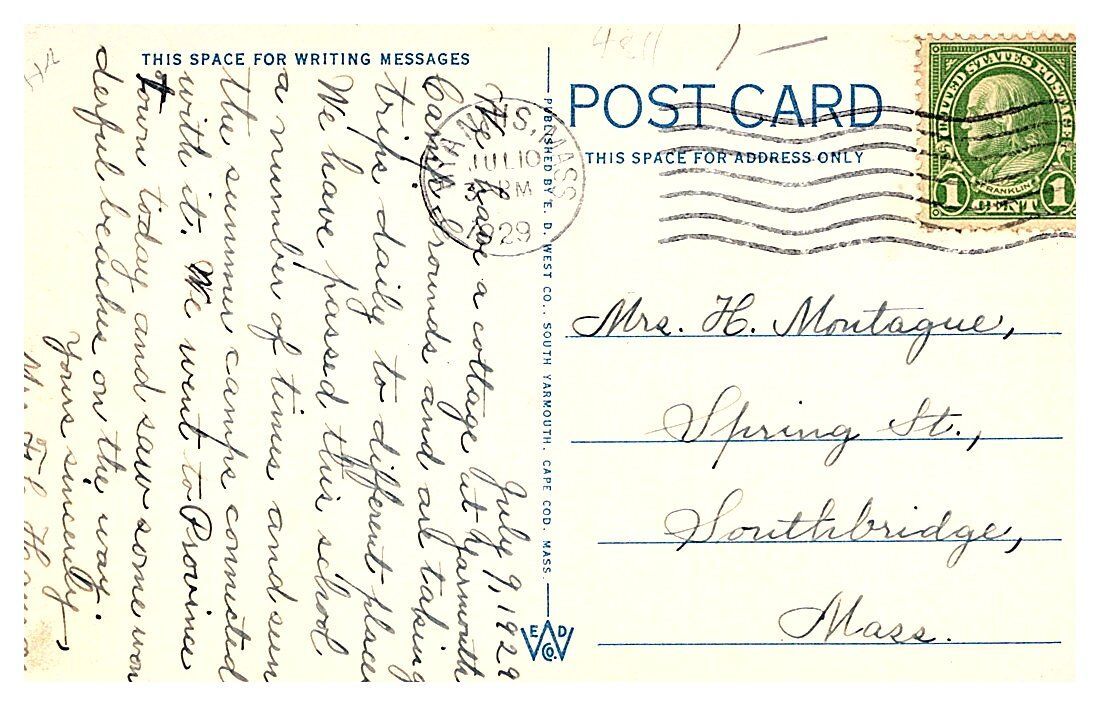 THIS SPACE FOR WRITING MESSAGES
July 9, 1929
We have a cottage at Yarmouth
Camp Grounds and are taking
trips daily to different places
We have passed this school
a number of times and seen
the summer camps connected
with it. We went to Province
town today and saw some won
derful beaches on the way.
Yours sincerely,
PUBLISHED BY E. D. WEST CO., SOUTH YARMOUTH, CAPE COD, MASS.
E D
W
CO.
POST CARD
THIS SPACE FOR ADDRESS ONLY
HYANNIS, MASS
JUL 10
3 PM
1929
UNITED STATES POSTAGE
FRANKLIN
1 CENT 1
Mrs. H. Montague,
Spring St.,
Southbridge,
Mass.